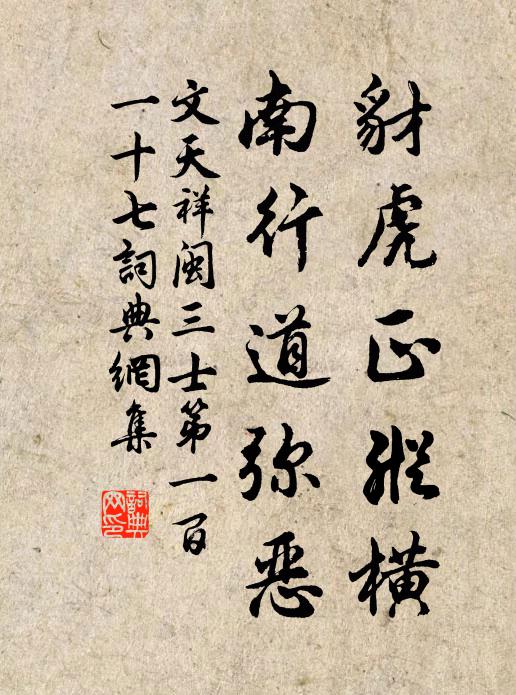 豺虎正縱橫
南行道弥惡
文天祥闽三士第一百
一十七詞典網集
詞典
网印